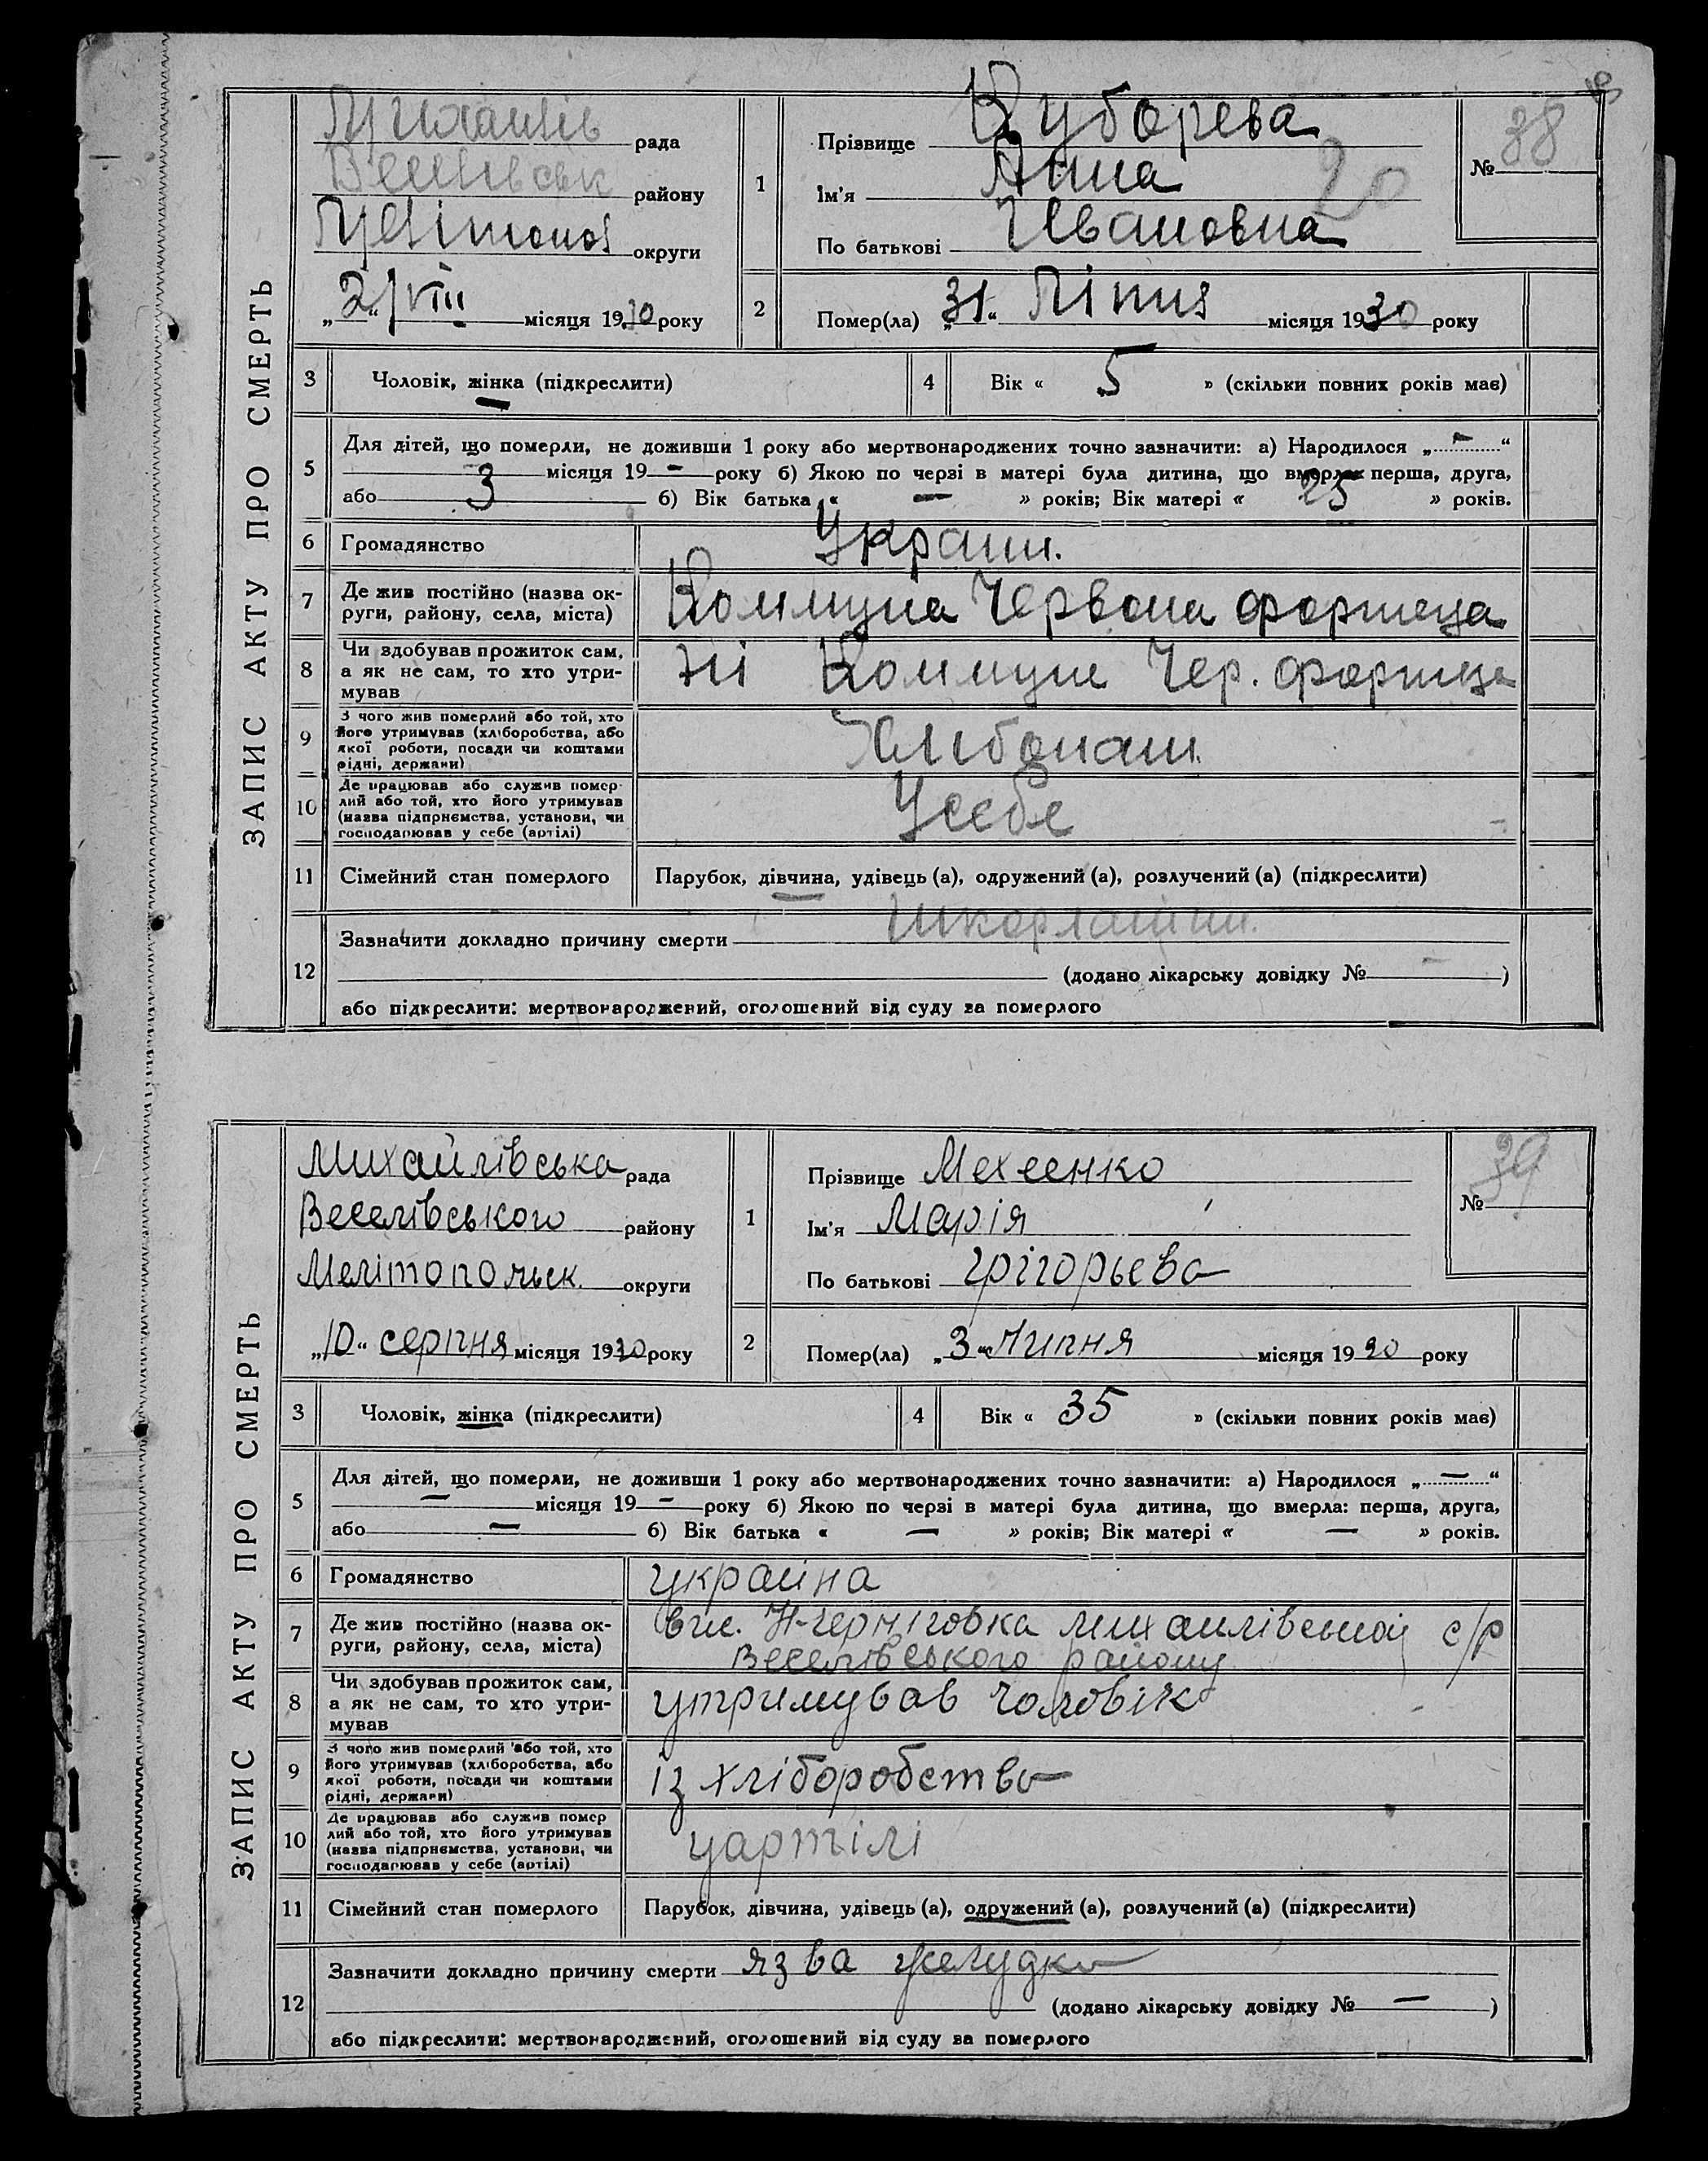 ЗАПИС АКТУ ПРО СМЕРТЬ
Михайлів рада
Веселівськ району
Мелітопол округи
„2“ VIII місяця 1930 року
1
Прізвище Кубарева
Ім'я Анна
По батькові Ивановна
20
№ 38
2
Помер(ла) „31“ Ліпня місяця 1930 року
3 Чоловік, жінка (підкреслити)
4 Вік « 5 » (скільки повних років має)
5 Для дітей, що померли, не доживши 1 року або мертвонароджених точно зазначити: а) Народилося „ – “
місяця 19 – року б) Якою по черзі в матері була дитина, що вмерла: перша, друга,
або 3 б) Вік батька « — » років; Вік матері « 25 » років.
6 Громадянство Украин.
7 Де жив постійно (назва ок-
руги, району, села, міста) Коммуна Червона фортеца
8 Чи здобував прожиток сам,
а як не сам, то хто утри-
мував
ні Коммуне Чер. фортеца
9 З чого жив померлий або той, хто
його утримував (хліборобства, або
якої роботи, посади чи коштами
рідні, держави)
10 Де працював або служив помер-
лий або той, хто його утримував
(назва підприємства, установи, чи
господарював у себе (артілі)
Усебе
11 Сімейний стан померлого Парубок, дівчина, удівець (а), одружений (а), розлучений (а) (підкреслити)
12 Зазначити докладно причину смерти
(додано лікарську довідку № – )
або підкреслити: мертвонароджений, оголошений від суду за померлого
ЗАПИС АКТУ ПРО СМЕРТЬ
Михайлівська рада
Веселівського району
Мелітопольск. округи
„10“ серпня місяця 1930 року
1
Прізвище Мехеенко
Ім'я Марія
По батькові Грігорьева
№ 39
2
Помер(ла) „3“ липня місяця 1930 року
3 Чоловік, жінка (підкреслити)
4 Вік « 35 » (скільки повних років має)
5 Для дітей, що померли, не доживши 1 року або мертвонароджених точно зазначити: а) Народилося „ — “
— місяця 19 – року б) Якою по черзі в матері була дитина, що вмерла: перша, друга,
або — б) Вік батька « — » років; Вік матері « — » років.
6 Громадянство україна
7 Де жив постійно (назва ок-
руги, району, села, міста)
Н-Чернiговка михаилівськой с/р
Веселівського району
8 Чи здобував прожиток сам,
а як не сам, то хто утри-
мував
утримував чоловік
9 З чого жив померлий або той, хто
його утримував (хліборобства, або
якої роботи, посади чи коштами
рідні, держави)
із хліборобства
10 Де працював або служив помер
лий або той, хто його утримував
(назва підприємства, установи, чи
господарював у себе (артілі)
уартілі
11 Сімейний стан померлого Парубок, дівчина, удівець (а), одружений (а), розлучений (а) (підкреслити)
12 Зазначити докладно причину смерти язва желудка
(додано лікарську довідку № — )
або підкреслити: мертвонароджений, оголошений від суду за померлого